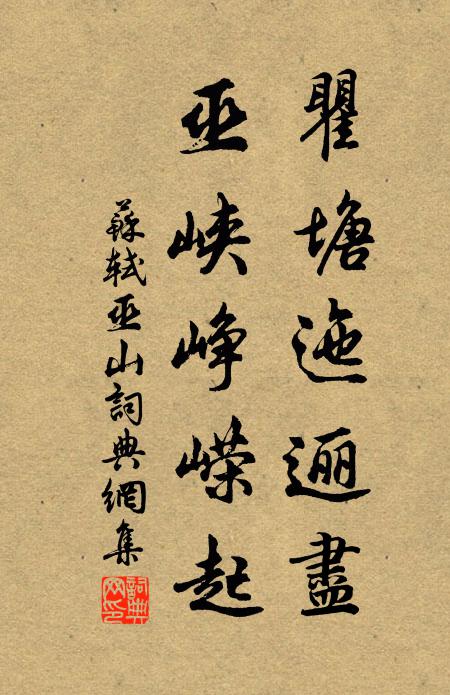 瞿塘迤邐盡
巫峽崢嶸起
蘇軾巫山詞典網集
詞典網印